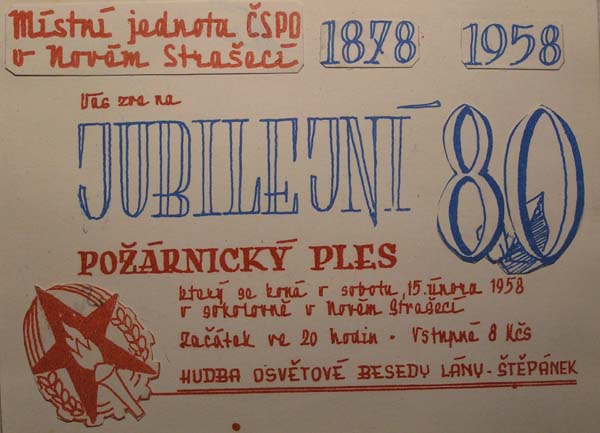 Místní jednota ČSPO
v Novém Strašecí
1878 1958
Vás zve na
JUBILEJNÍ 80
POŽÁRNICKÝ PLES
který se koná v sobotu, 15. února 1958
v sokolovně v Novém Strašecí
Začátek ve 20 hodin · Vstupné 8 Kčs
HUDBA OSVĚTOVÉ BESEDY LÁNY - ŠTĚPÁNEK